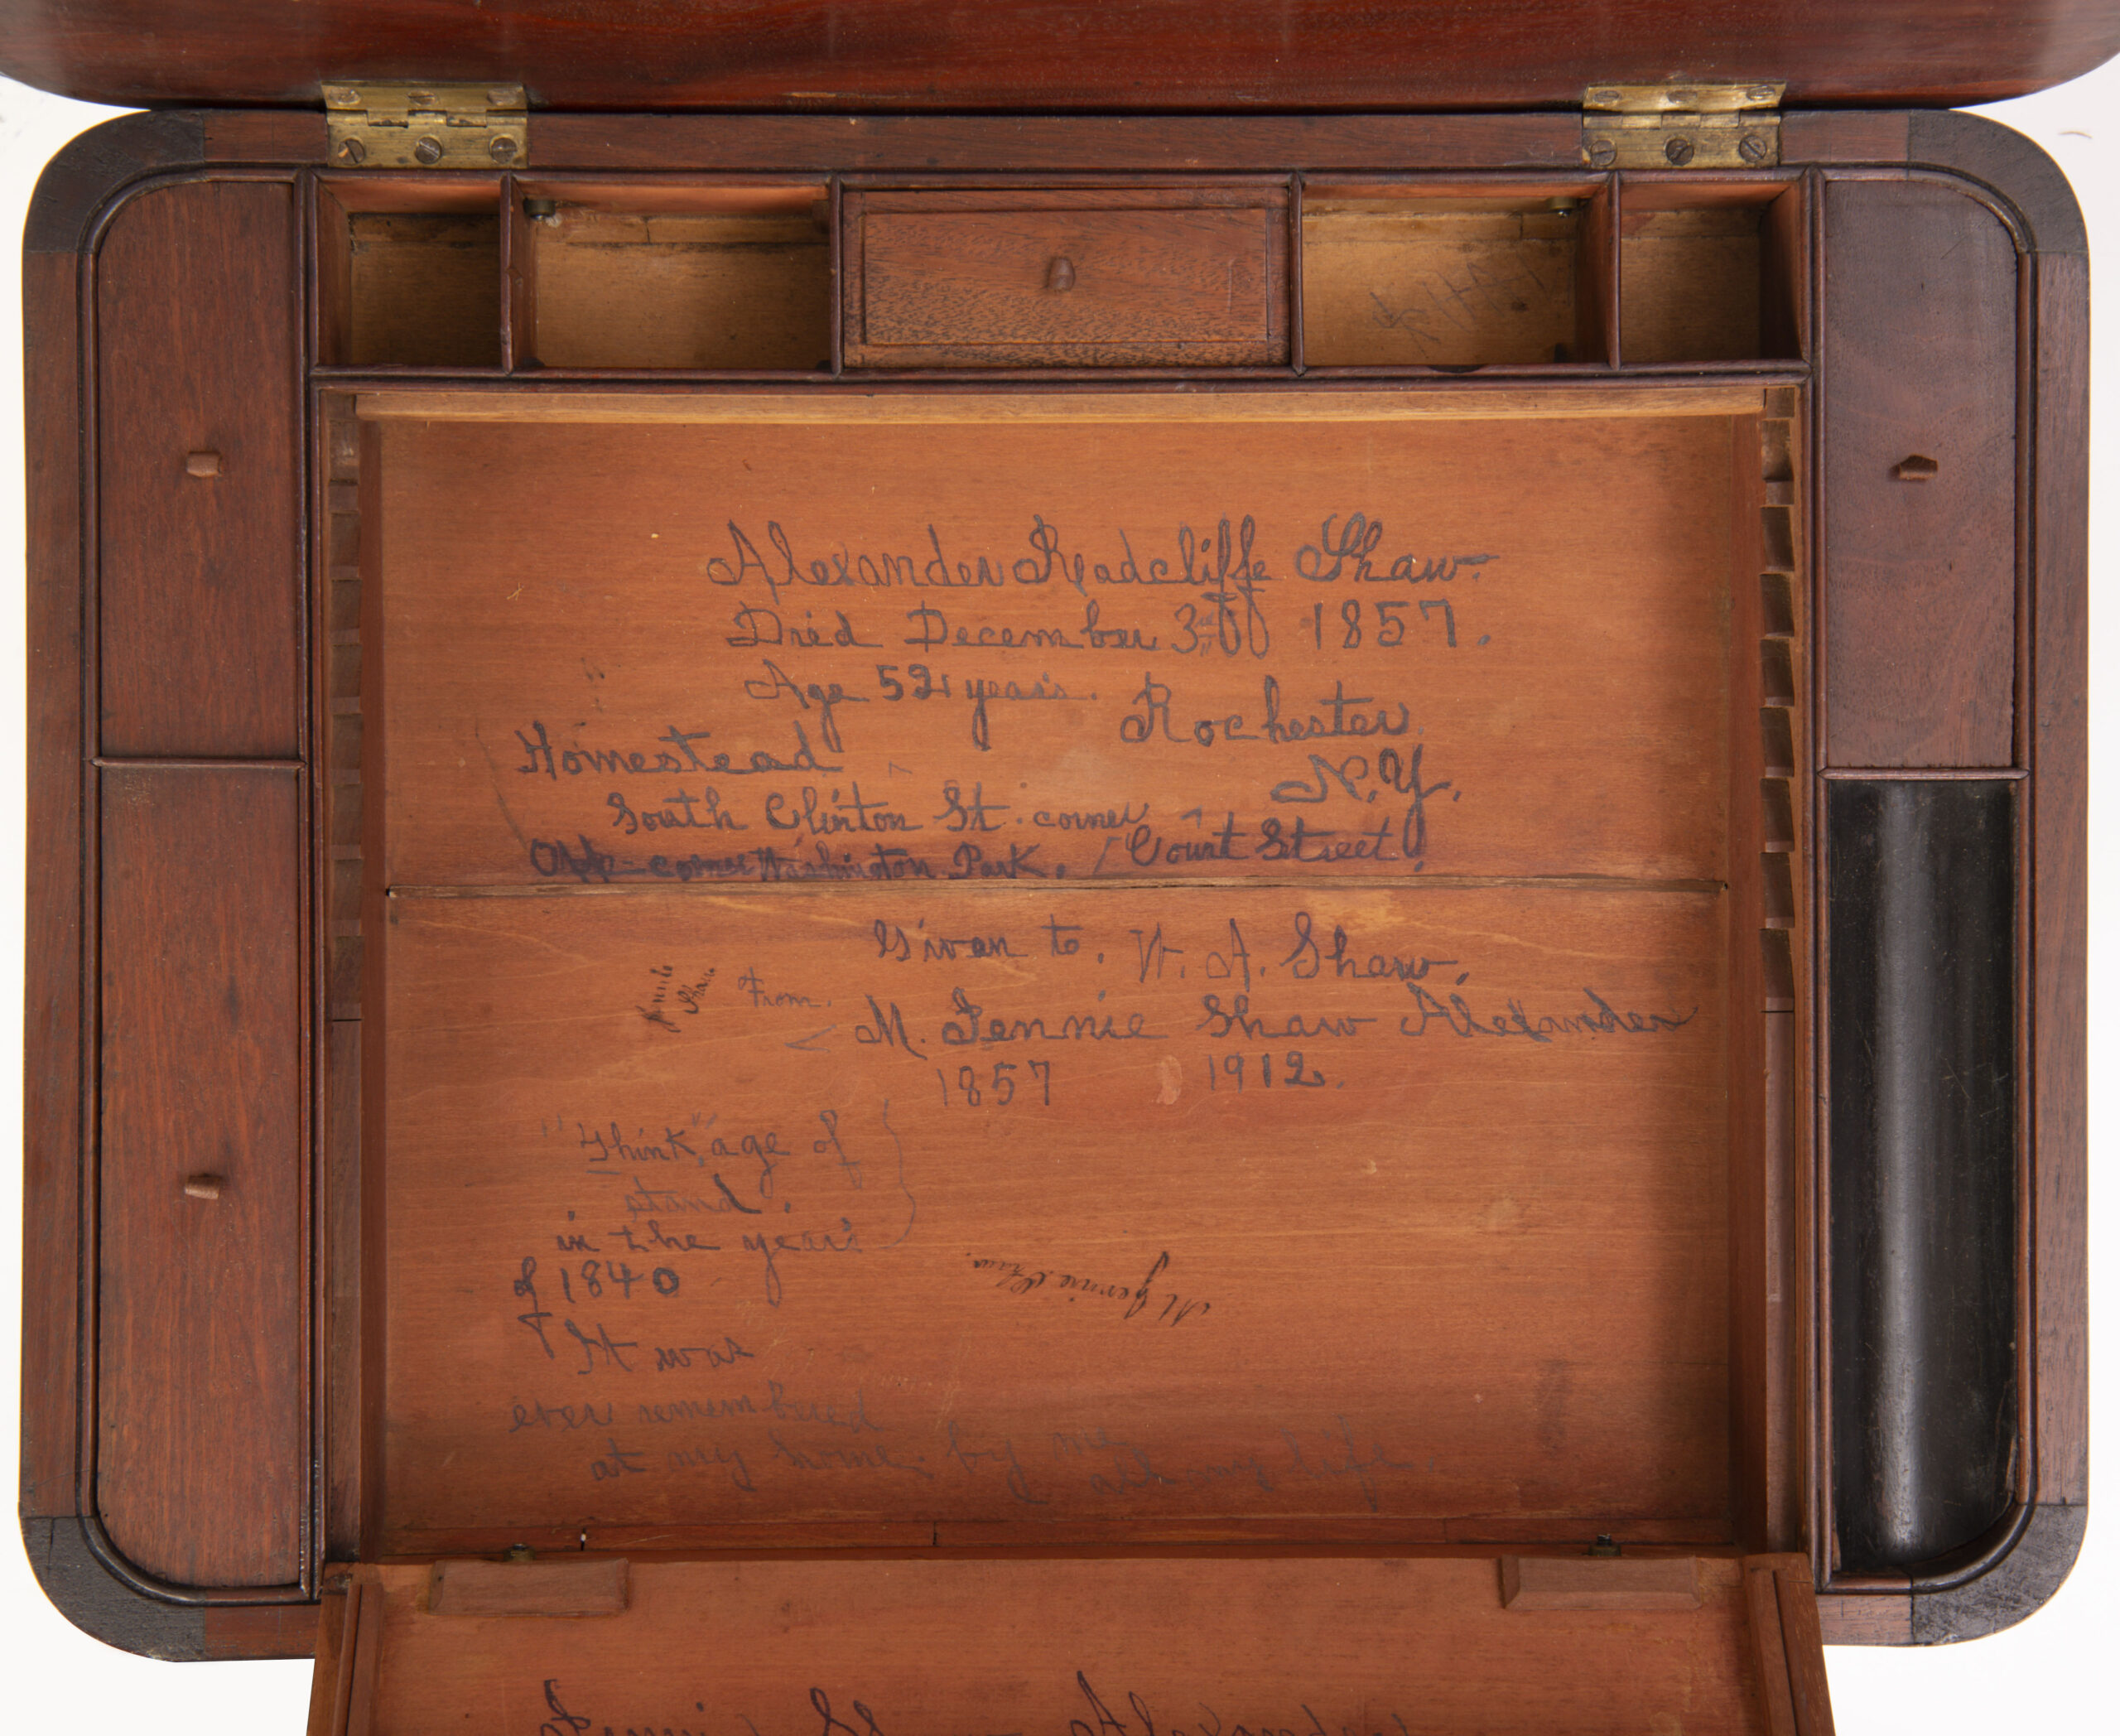 Alexander Radcliffe Shaw.
Died December 1857.
Age 52 years.
Rochester.
N.Y.
Homestead
South Clinton St. corner
Court Street.
Opp-corner Washington Park.
Givan to. W. A. Shaw.
From.
M. Jennie Shaw Alexander
1857 1912.
Jennie
Shaw
"Think" age of
stand.
in the years
of 1840
It was
ever remembered
at my home. by me
all my life.
M Jennie Shaw.